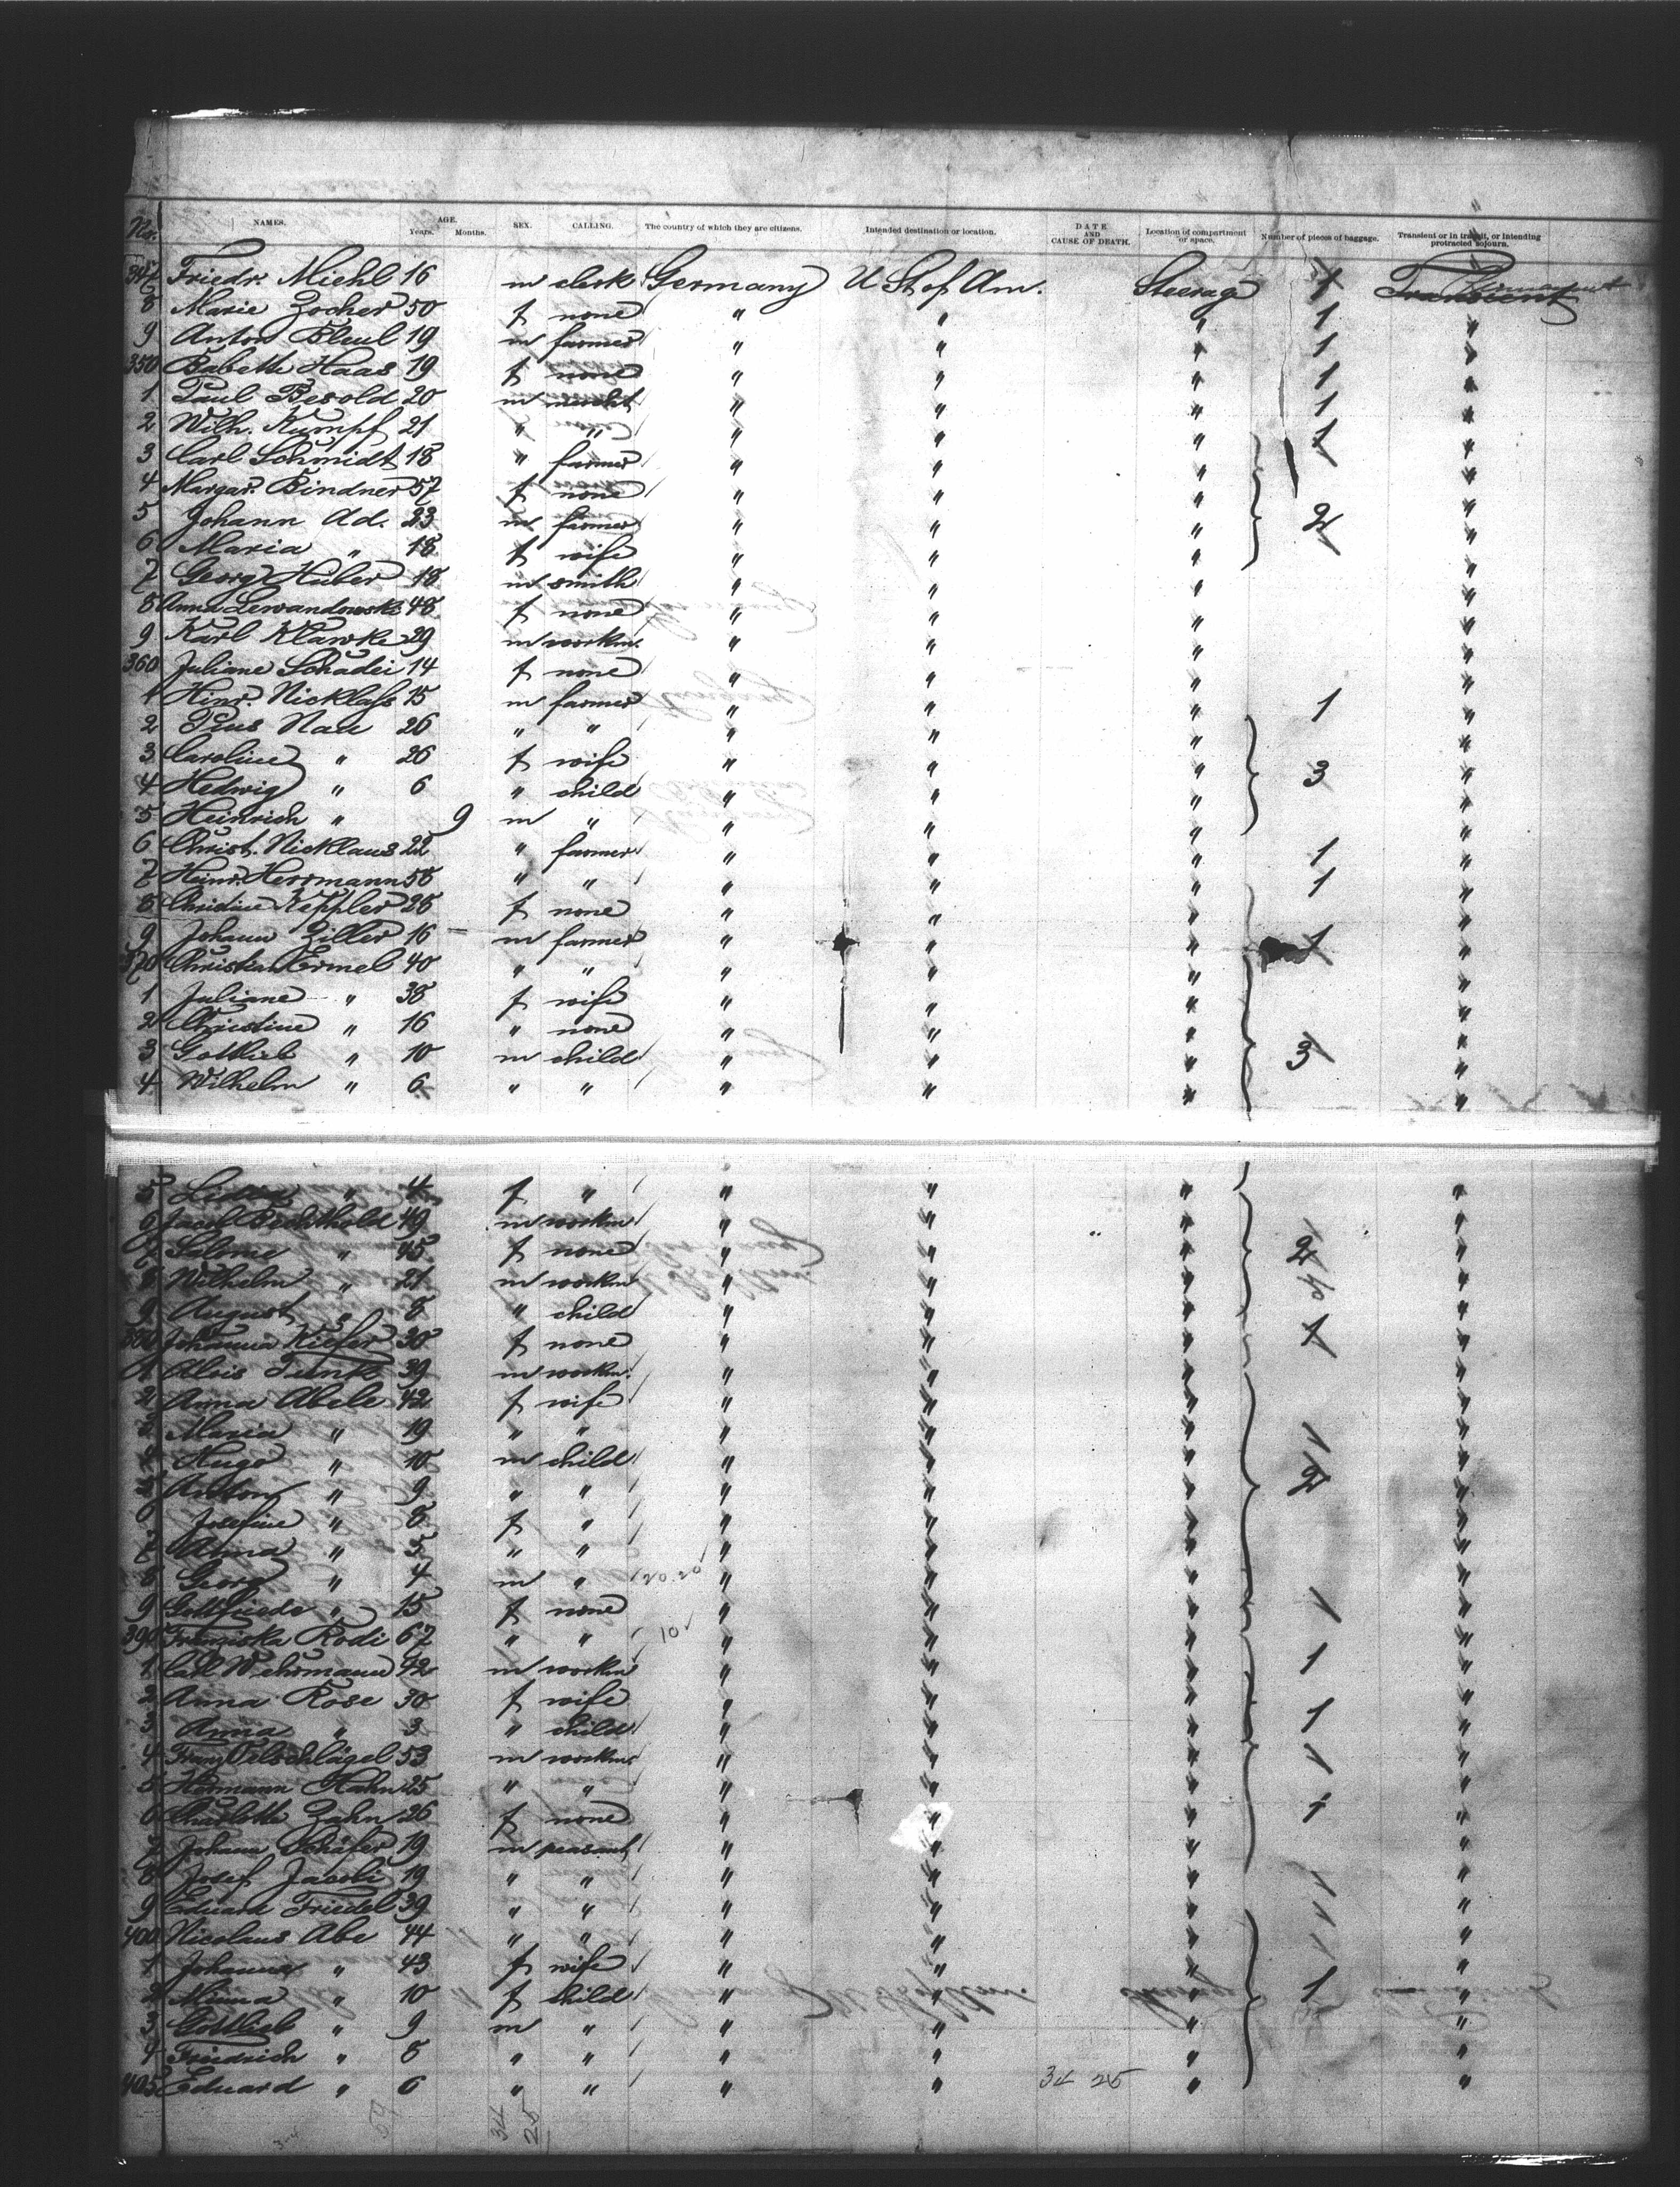 No. NAMES. AGE. Years. Months. SEX. CALLING. The country of which they are citizens. Intended destination or location. DATE AND CAUSE OF DEATH. Location of compartment or space. Number of pieces of baggage. Transient or in transit, or intending protracted sojourn.
347 Friedr. Miehl 16 m clerk Germany U St of Am. Steerage 1 Transient
8 Marie Zocher 50 f none " " " 1 "
9 Anton Bleul 19 m farmer " " " 1 "
350 Babette Haas 19 f none " " " 1 "
1 Paul Besold 20 m mercht " " " 1 "
2 Wilh. Kumpf 21 " " " " " 1 "
3 Carl Schmidt 18 " farmer " " " "
4 Margar. Bindner 57 f none " " " "
5 Johann Ad. 23 m farmer " " " 2 "
6 Maria " 18 f wife " " " "
7 Georg Huber 18 m smith " " " "
8 Anna Lewandowski 48 f none " " " "
9 Karl Klawke 29 m workm. " " " "
360 Juliane Schadei 14 f none " " " "
1 Hinr. Nicklass 15 m farmer " " " 1 "
2 Pius Nau 26 " " " " " "
3 Caroline " 26 f wife " " " "
4 Hedwig " 6 " child " " " 3 "
5 Heinrich " 9 m " " " " "
6 Christ. Nicklaus 22 " farmer " " " 1 "
7 Heinr. Herrmann 58 " " " " " 1 "
8 Christine Keppler 28 f none " " " "
9 Johann Ziller 16 m farmer " " " 1 "
370 Christian Ermel 40 " " " " " "
1 Juliane " 38 f wife " " " "
2 Christine " 16 " none " " " "
3 Gottlieb " 10 m child " " " 3 "
4 Wilhelm " 6 " " " " " "
5 " 4 f " " " " "
6 Jacob Bechthold 49 m workm " " " "
7 Salome " 45 f none " " " 2 "
8 Wilhelm " 21 m workm " " " "
9 August " 8 " child " " " "
380 Johanna Kiefer 30 f none " " " 1 "
1 Alois Funk 39 m workm. " " " "
2 Anna Abele 42 f wife " " " "
3 Maria " 19 " " " " " 1 "
4 Hugo " 10 m child " " " "
5 Anton " 9 " " " " " 2 "
6 Josefine " 8 f " " " " "
7 Anna " 5 " " " " " "
8 Georg " 4 m " 20.20 " " " "
9 " 15 f none " " " 1 "
390 Franziska Rodi 67 " " 10 " " " "
1 Carl Wehrmann 42 m workm " " " 1 "
2 Anna Rose 30 f wife " " " "
3 Anna " 3 " child " " " 1 "
4 Franz Oelschlägel 53 m workm " " " 1 "
5 Hermann Hahn 25 " " " " " "
6 Charlotte Zahn 26 f none " " " 1 "
7 Johann Schäfer 19 m peasant " " " "
8 Josef Jacobi 19 " " " " " 1 "
9 Eduard Friedel 39 " " " " " 1 "
400 Nicolaus Abe 44 " " " " " 1 "
1 Johanna " 43 f wife " " " "
2 Minna " 10 f child " " " 1 "
3 Gottlieb " 9 m " " " " "
4 Friedrich " 8 " " " " " "
405 Eduard " 6 " " " " 34 25 " "
59 34 25